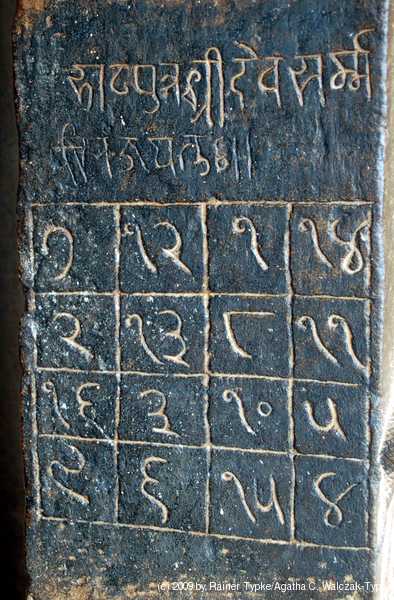 पुत्रश्रीदेवसर्म्म
७ १२ १ १४
२ १३ ८ ११
१६ ३ १० ५
९ ६ १५ ४
(c) 2009 by, Rainer Typke/Agatha C. Walczak-Typ